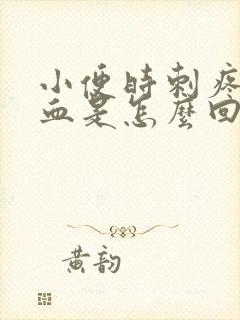 小便时刺疼
血是怎麼回
黄韵